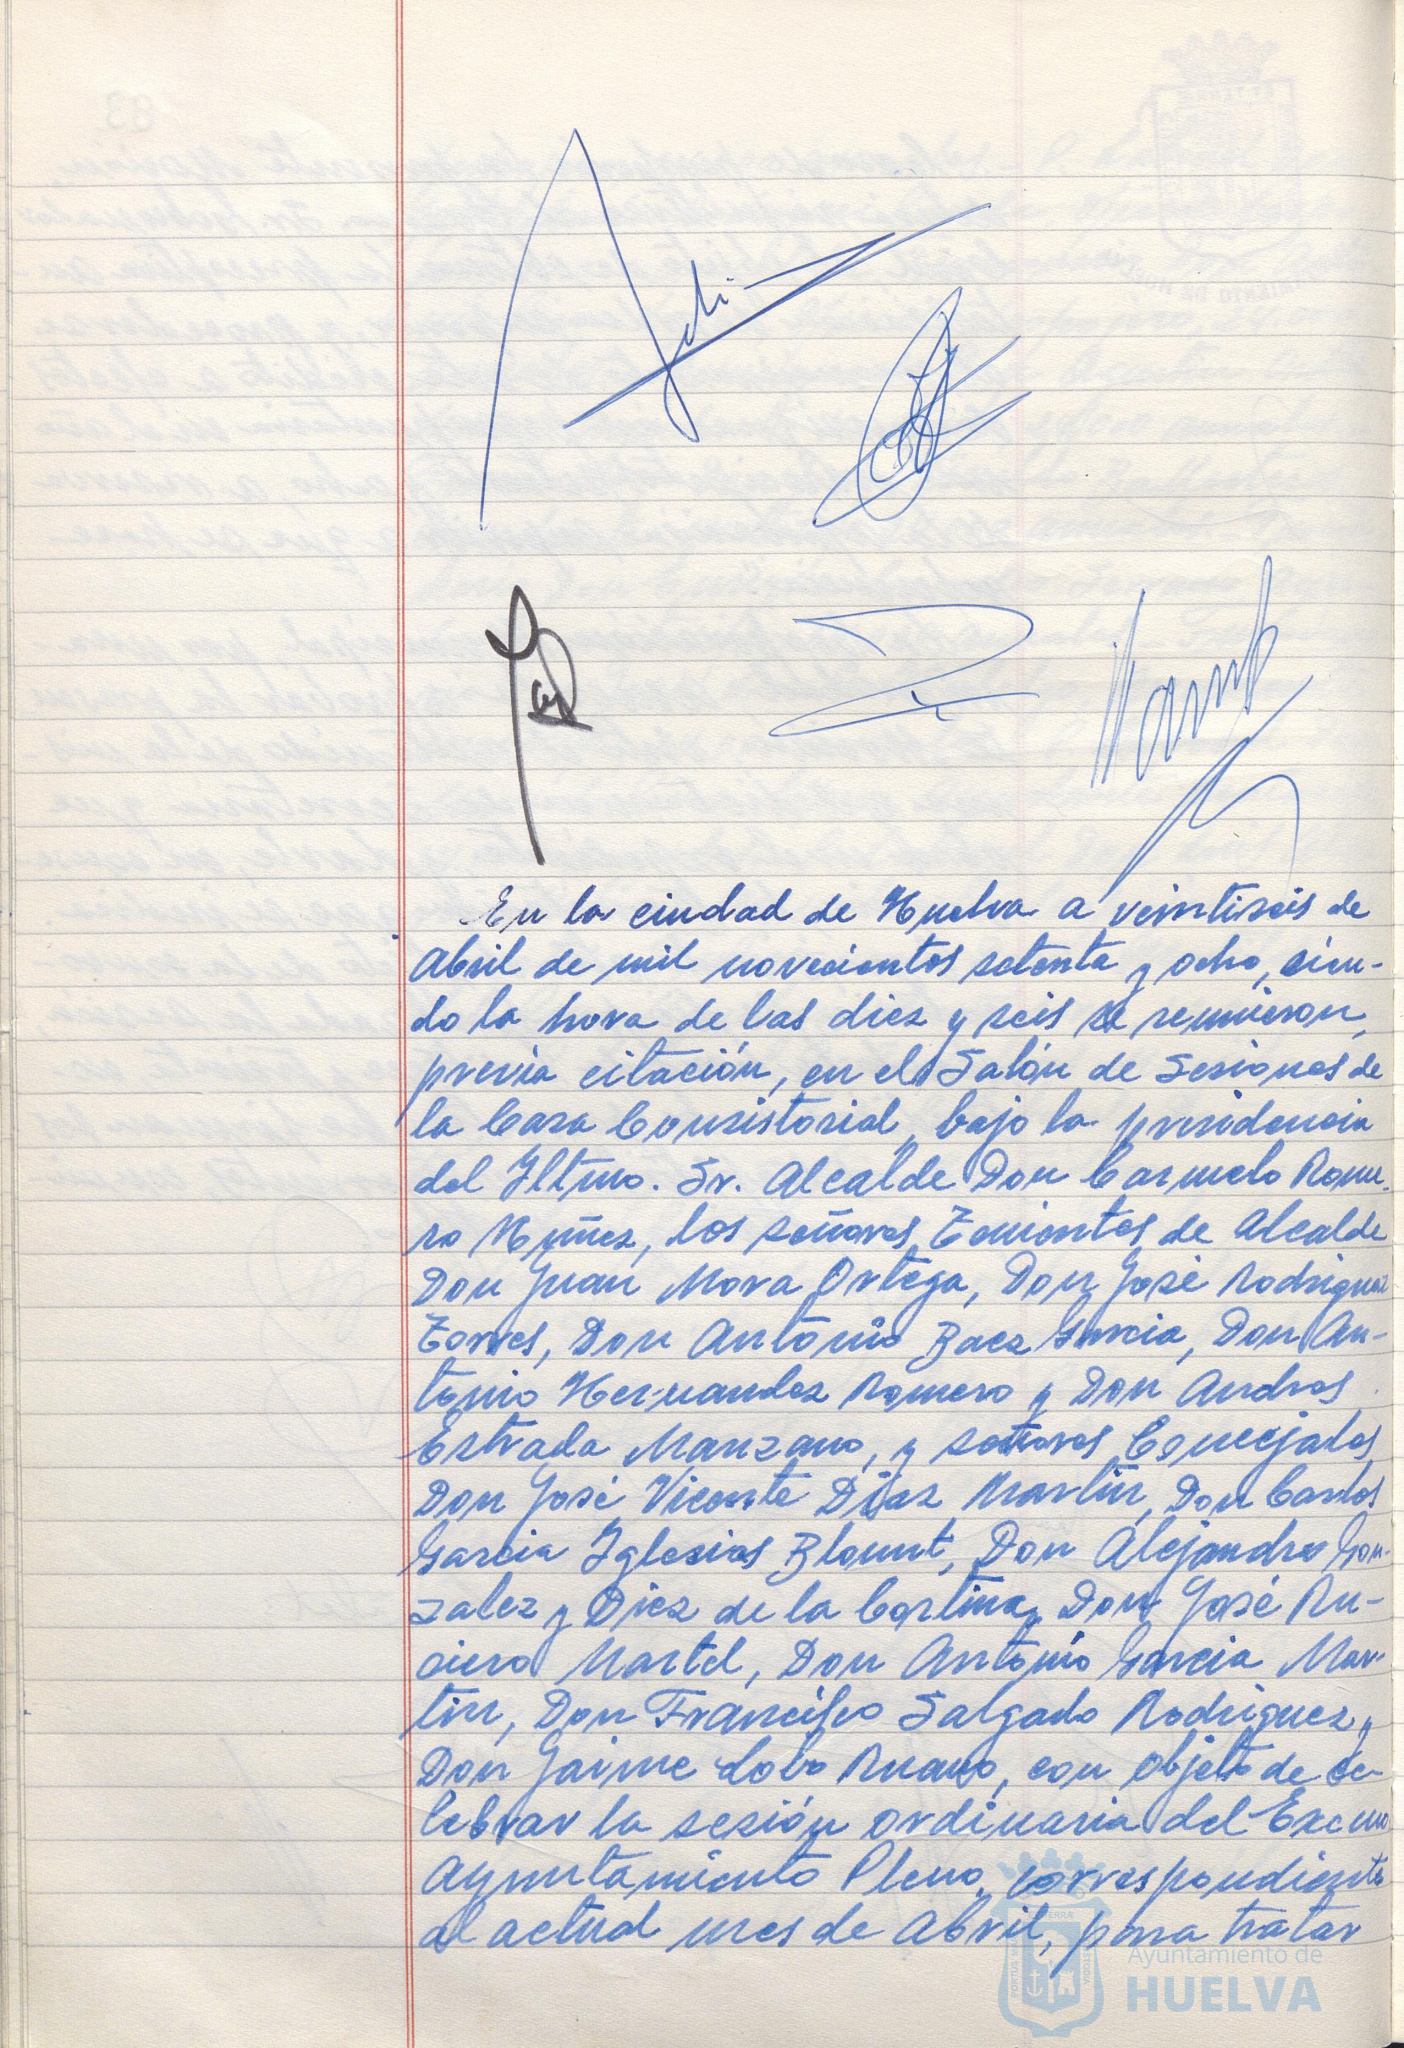 En la ciudad de Huelva a veintiseis de
Abril de mil novecientos setenta y ocho, sien-
do la hora de las diez y seis se reunieron,
previa citación, en el Salón de Sesiones de
la Casa Consistorial, bajo la presidencia
del Iltmo. Sr. Alcalde Don Carmelo Rome-
ro Núñez, los señores Tenientes de Alcalde
Don Juan Mora Ortega, Don José Rodriguez
Torres, Don Antonio Baez Garcia, Don An-
tonio Hernandez Romero y Don Andres
Estrada Manzano, y señores Concejales
Don José Vicente Diaz Martin, Don Carlos
Garcia Iglesias Blount, Don Alejandro Gon-
zalez y Diez de la Cortina, Don José Ru-
ciero Martel, Don Antonio Garcia Mar-
tin, Don Francisco Salgado Rodriguez y
Don Jaime Lobo Ruano, con objeto de ce-
lebrar la sesión ordinaria del Excmo
Ayuntamiento Pleno, correspondiente
al actual mes de Abril, para tratar
Ayuntamiento de
HUELVA